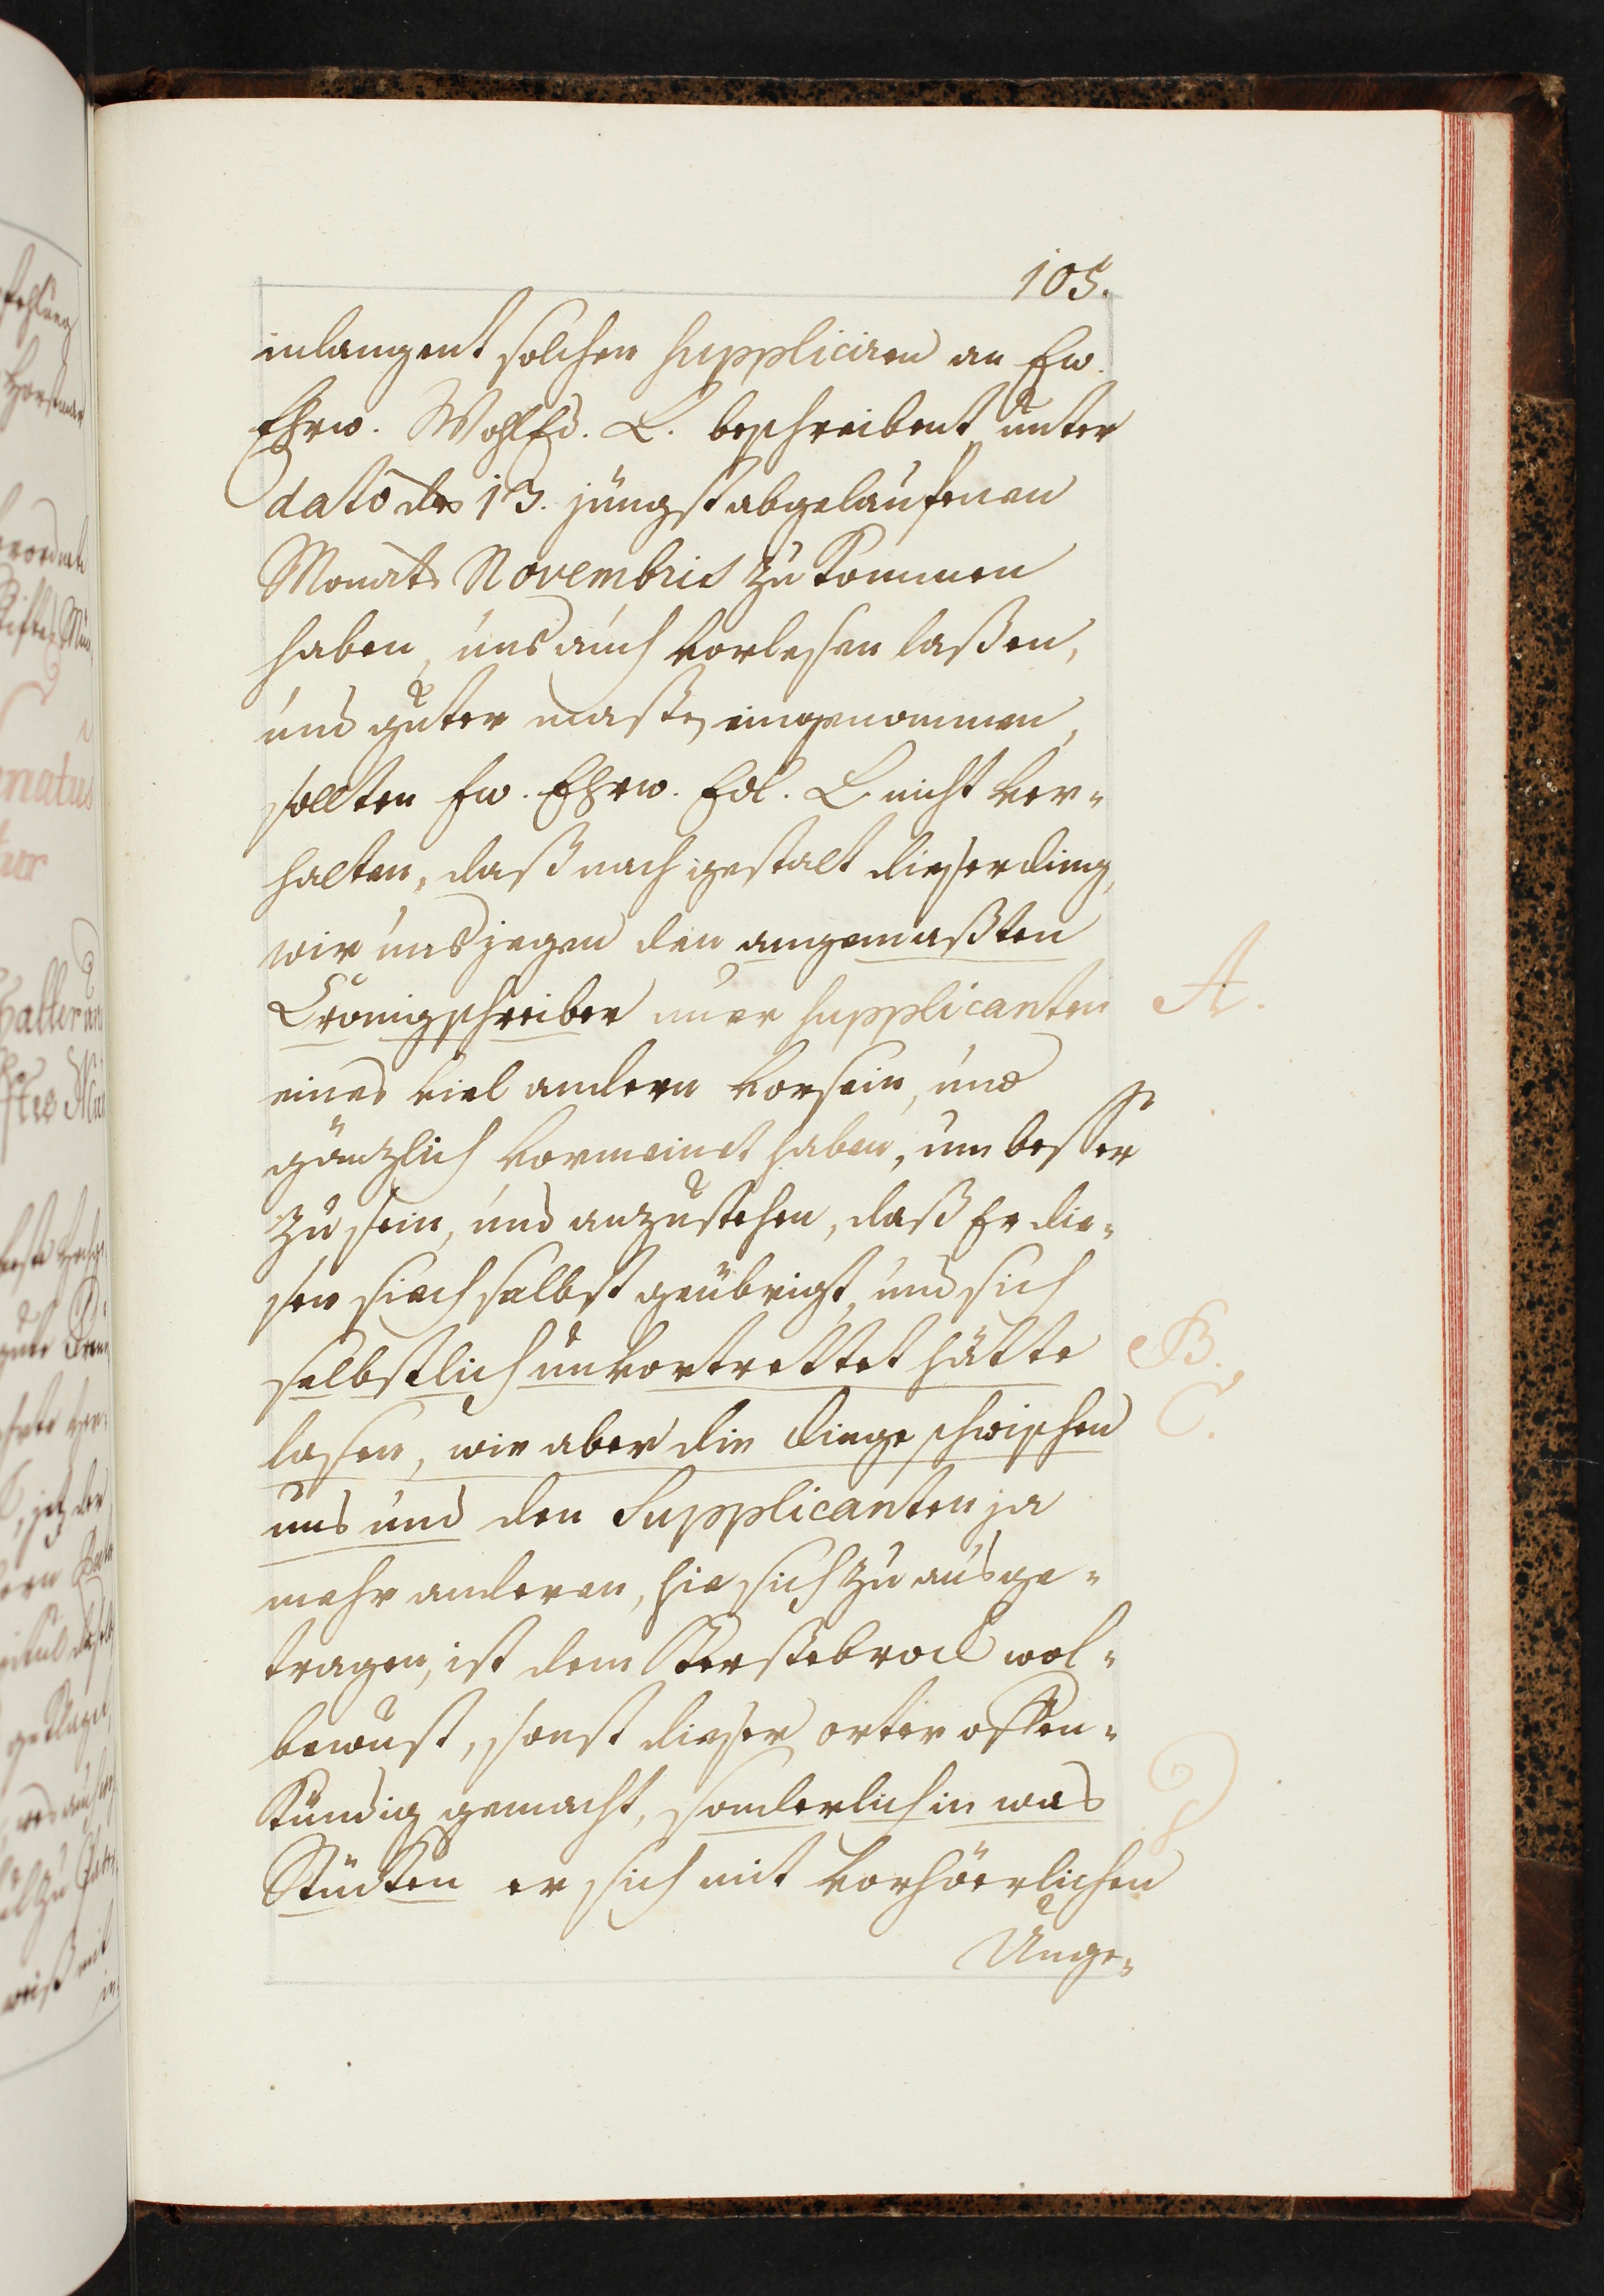 105.
inlangent solchen suppliciren an Ew.
Ehrw. WohlEd. L. beschreibent unter
dato des 13. jüngst abgelaufenen
Monats Novembris zu kommen
haben, uns auch vorlesen laßen,
und guter maßen eingenommen,
sollten Ew. Ehrw. Edl. L nicht ver-
halten, daß nach gestalt dieser ding,
wir uns jegen den angemaßten
Cronigschreiber nuer supplicanten A.
eines viel andern vorsein, und
gänzlich vormeinet haben, um besser
zu sein, und anzustehen, daß Er die-
sen sich selbst geübrigt, und sich
selbstlich unvortrettet hätte B.
lassen, wie aber die dinge schwischen C.
uns und den Supplicanten ja
mehr anderen, hie sich zu ausge-
tragen, ist dem Kerssebrock wol-
bewust, sonst dieser orter offen-
kundig gemacht, sonderlich in was
Stucken er sich mit vorhöerlichen
Unge-